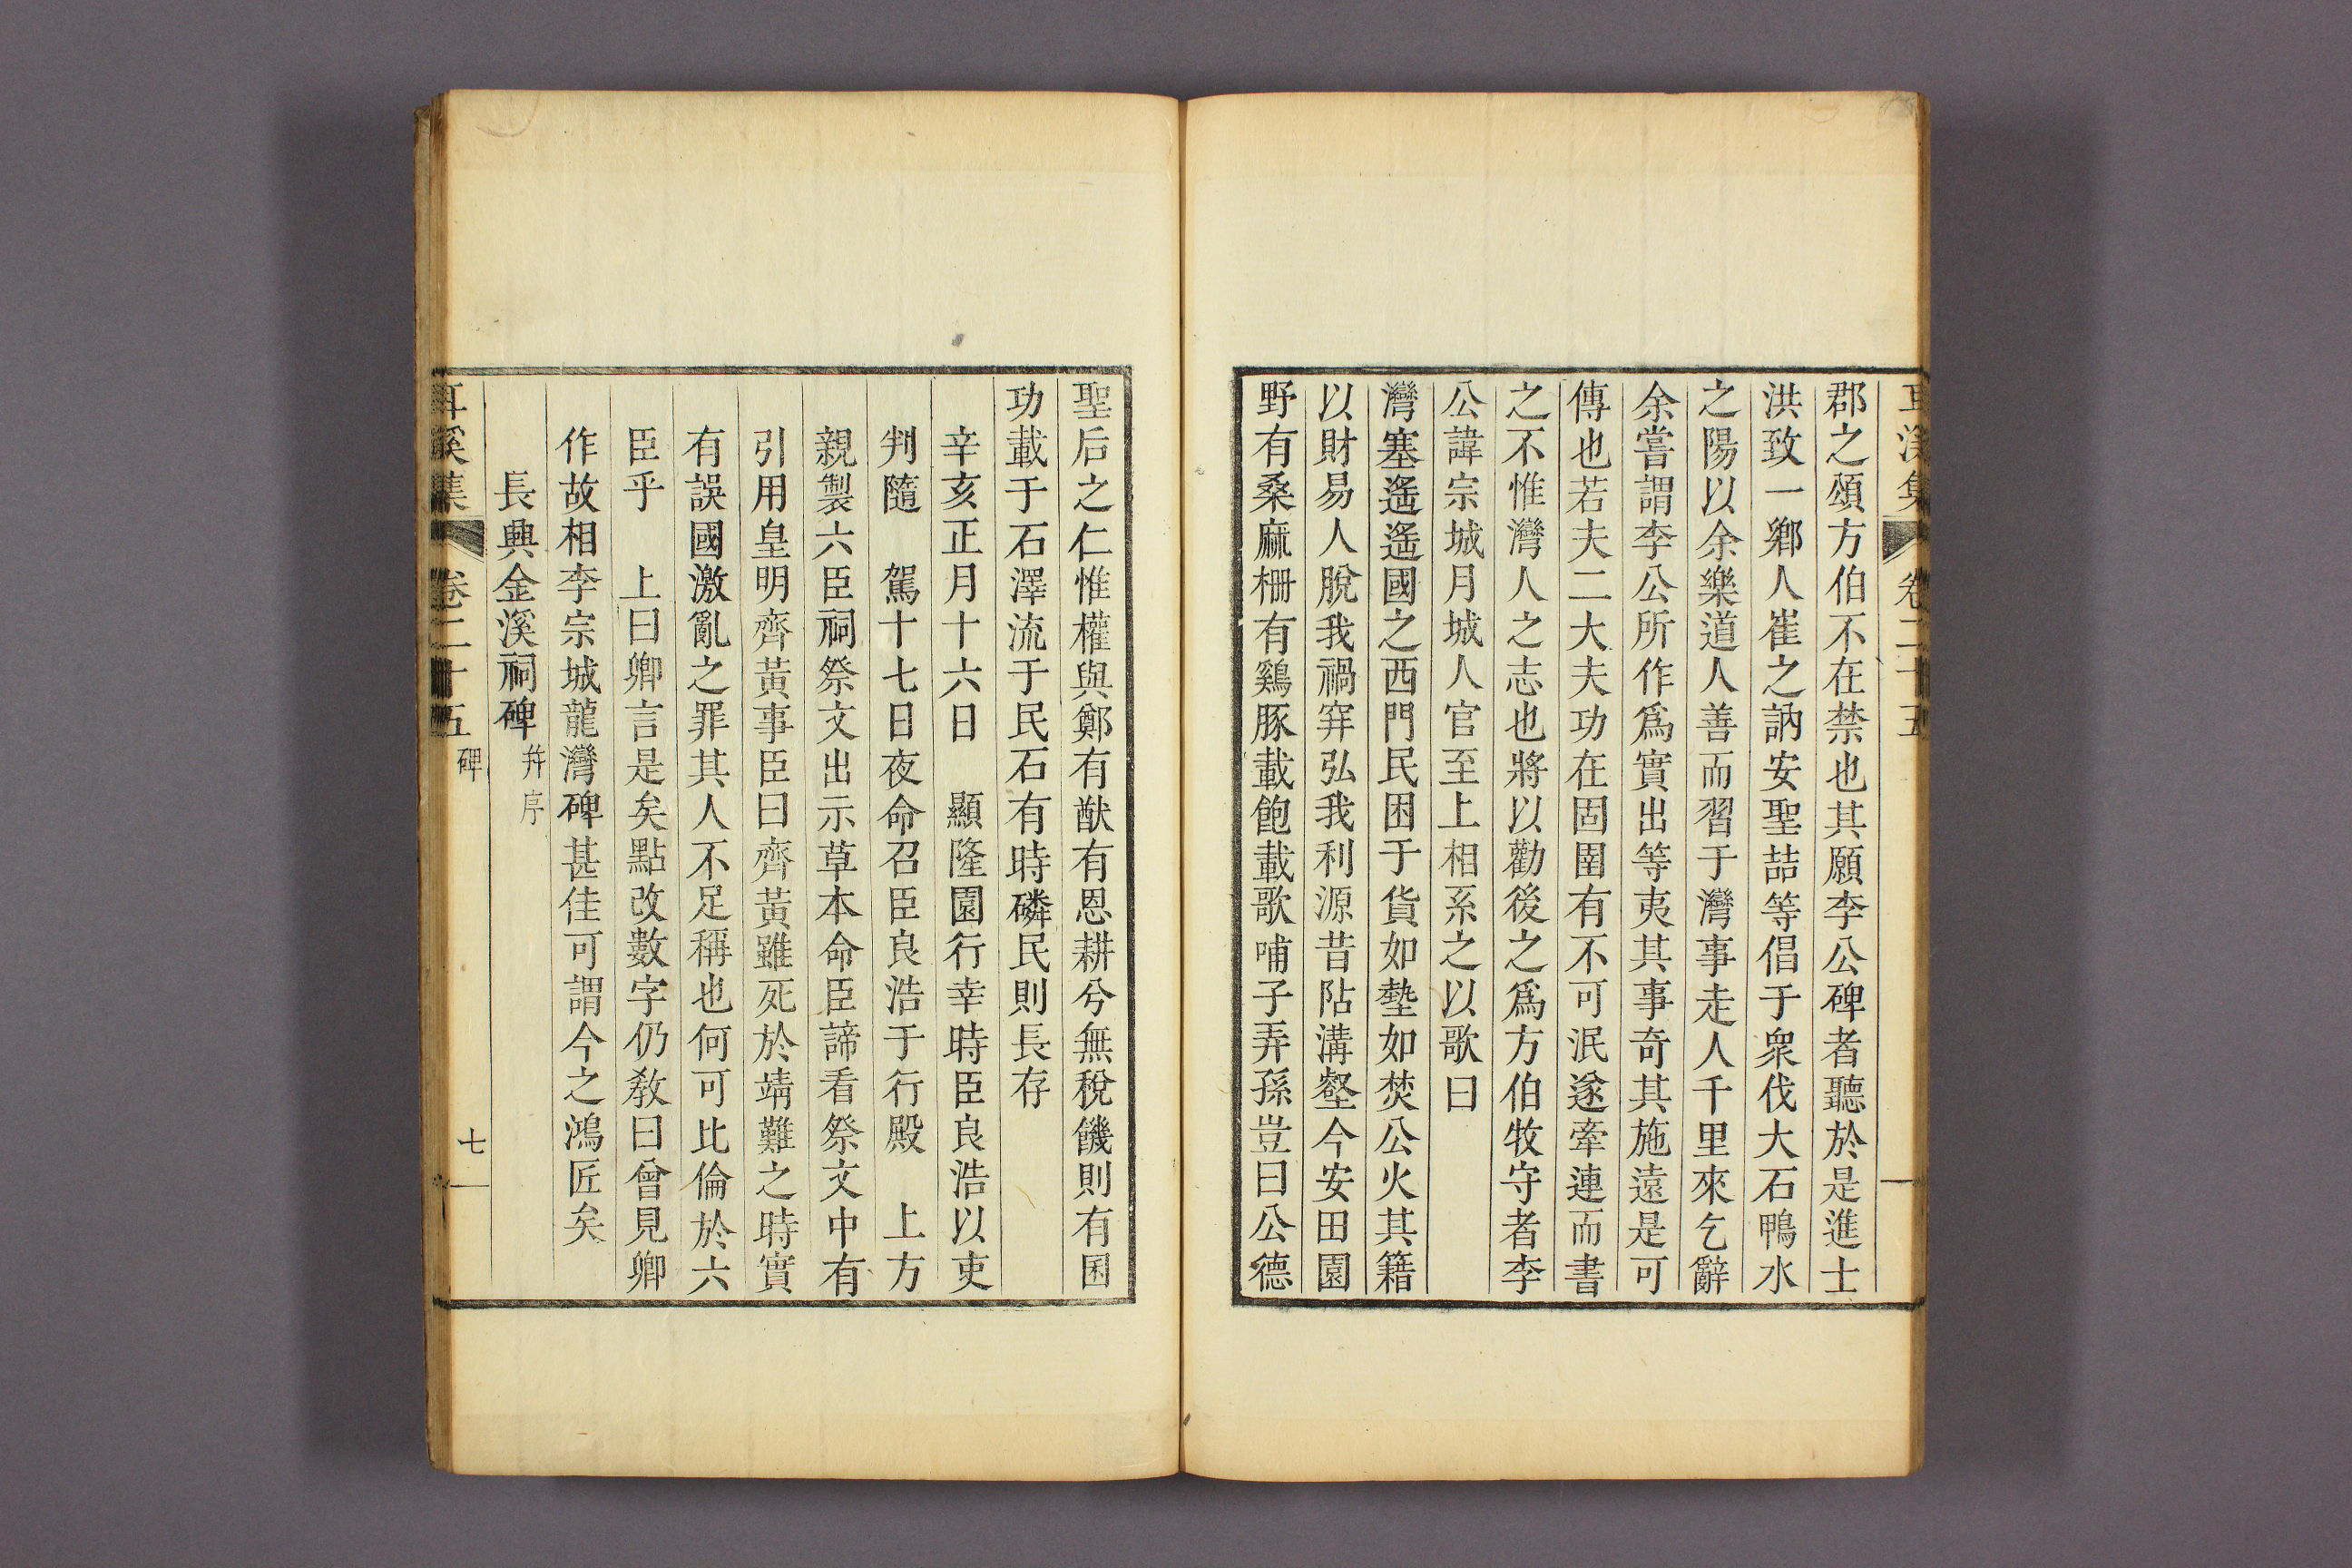 耳溪集 卷二十五
郡之頌方伯不在禁也其願李公碑者聽於是進士
洪致一鄉人崔之訥安聖喆等倡于衆伐大石鴨水
之陽以余樂道人善而習于灣事走人千里來乞辭
余嘗謂李公所作爲實出等夷其事奇其施遠是可
傳也若夫二大夫功在固圉有不可泯遂牽連而書
之不惟灣人之志也將以勸後之爲方伯牧守者李
公諱宗城月城人官至上相系之以歌曰
灣塞遙遙國之西門民困于貨如墊如焚公火其籍
以財易人脫我禍穽弘我利源昔阽溝壑今安田園
野有桑麻柵有鷄豚載飽載歌哺子弄孫豈曰公德
聖后之仁惟權與鄭有猷有恩耕兮無稅饑則有囷
功載于石澤流于民石有時磷民則長存
辛亥正月十六日 顯隆園行幸時臣良浩以吏
判隨 駕十七日夜命召臣良浩于行殿 上方
親製六臣祠祭文出示草本命臣諦看祭文中有
引用皇明齊黃事臣曰齊黃雖死於靖難之時實
有誤國激亂之罪其人不足稱也何可比倫於六
臣乎 上曰卿言是矣點改數字仍敎曰曾見卿
作故相李宗城龍灣碑甚佳可謂今之鴻匠矣
長興金溪祠碑 幷序
耳溪集 卷二十五 碑 七